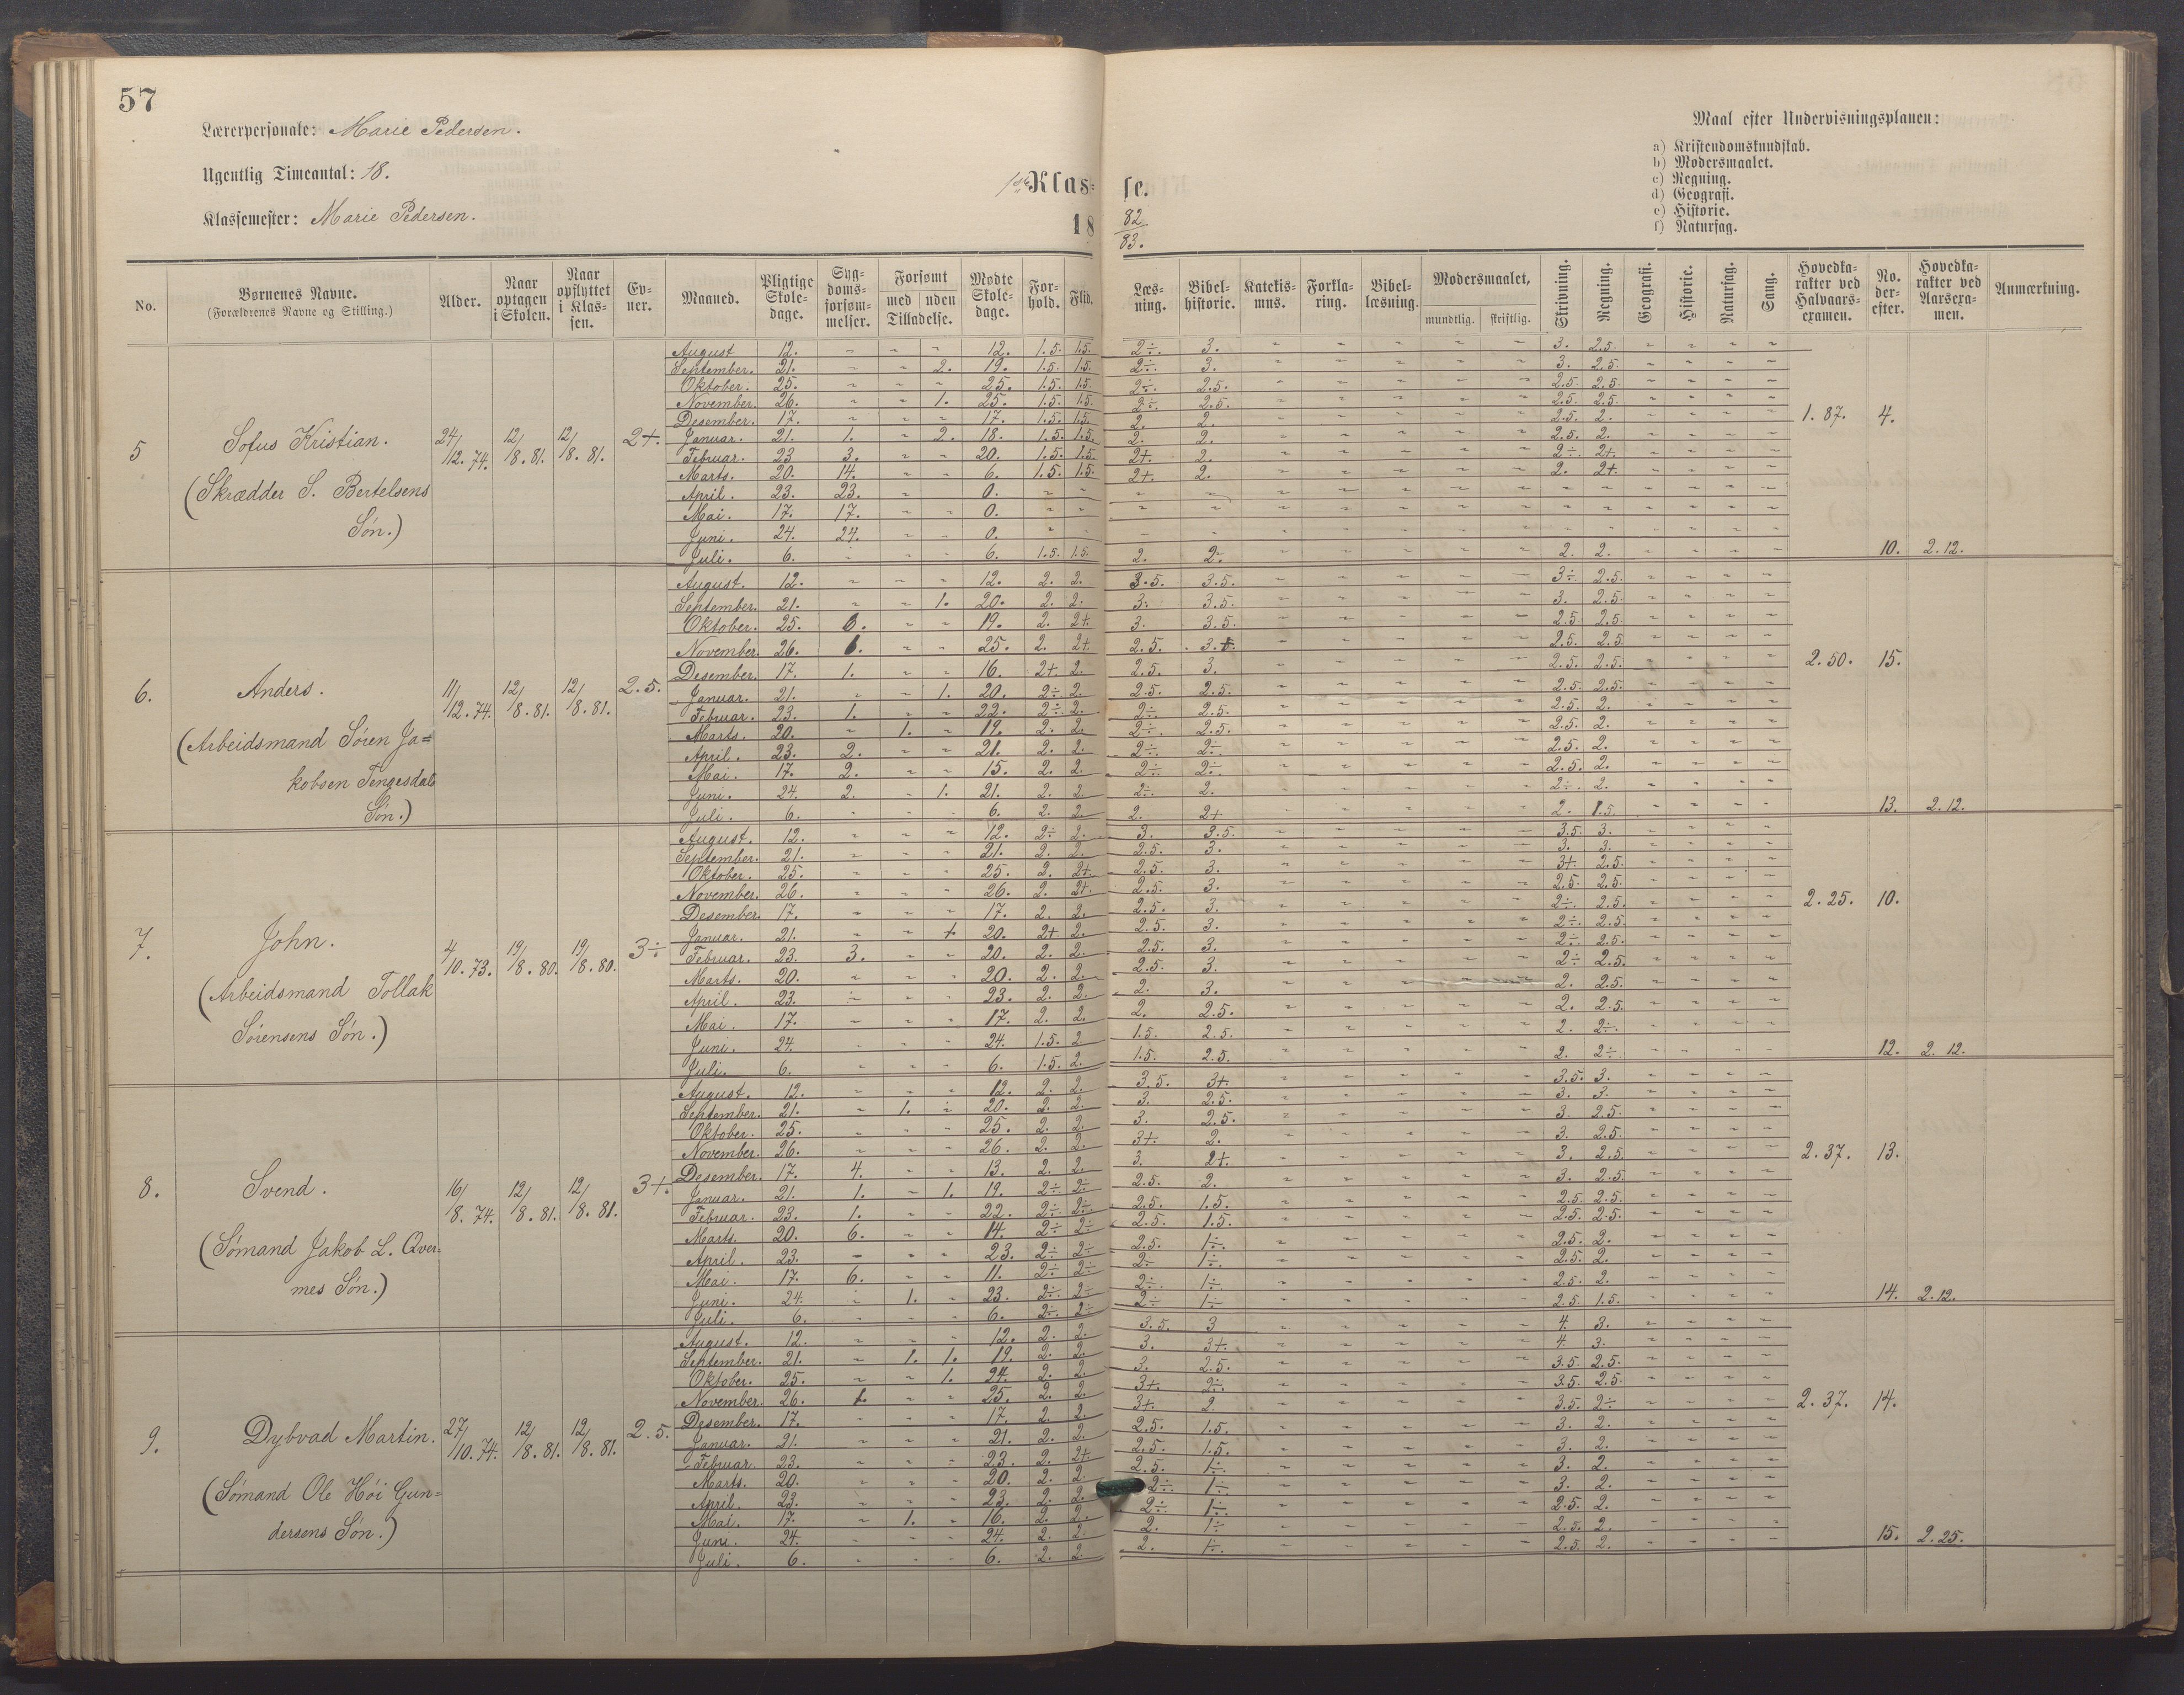 57
Lærerpersonale: Marie Pedersen.
Ugentlig Timeantal: 18.
Klassemester: Marie Pedersen.
1ste Klasse.
18 82/83.
Maal efter Undervisningsplanen:
a) Kristendomskundskab.
b) Modersmaalet.
c) Regning.
d) Geografi.
e) Historie.
f) Naturfag.
No. | Børnenes Navne. (Forældrenes Navne og Stilling.) | Alder. | Naar optagen i Skolen. | Naar opflyttet i Klassen. | Evner. | Maaned. | Pligtige Skoledage. | Sygdomsforsømmelser. | Forsømt med / uden Tilladelse. | Mødte Skoledage. | Forhold. | Flid. | Læsning. | Bibelhistorie. | Katekismus. | Forklaring. | Bibellæsning. | Modersmaalet, mundtlig. / skriftlig. | Skrivning. | Regning. | Geografi. | Historie. | Naturfag. | Sang. | Hovedkarakter ved Halvaarsexamen. | No. derefter. | Hovedkarakter ved Aarsexamen. | Anmærkning.
5 Sofus Kristian. 24/12. 74. 12/8. 81. 12/8. 81. 2+.
(Skrædder S. Bertelsens
Søn.)
August 12. " " " 12. 1.5. 1.5. 2÷. 3. 3. 2.5.
September. 21. " " 2. 19. 1.5. 1.5. 2÷. 3. 3. 2.5.
Oktober. 25. " " " 25. 1.5. 1.5. 2÷. 2.5. 2.5. 2.5.
November. 26. " " 1. 25. 1.5. 1.5. 2÷. 2.5. 2.5. 2.5.
Desember. 17. " " " 17. 1.5. 1.5. 2. 2. 2.5. 2. 1.87. 4.
Januar. 21. 1. " 2. 18. 1.5. 1.5. 2. 2. 2.5. 2.
Februar. 23 3. " " 20. 1.5. 1.5. 2+. 2. 2÷. 2+.
Marts. 20. 14. " " 6. 1.5. 1.5. 2+. 2. 2. 2+.
April. 23. 23. " 0. " "
Mai. 17. 17. " " 0. " "
Juni. 24. 24. " " 0. " "
Juli. 6. " " " 6. 1.5. 1.5. 2. 2. 2. 2. 10. 2.12.
6. Anders. 11/12. 74. 12/8. 81. 12/8. 81. 2.5.
(Arbeidsmand Søren Ja=
kobsen Tengesdals
Søn.)
August. 12. " " " 12. 2. 2. 3.5. 3.5. 3÷. 2.5.
September. 21. " " 1. 20. 2. 2. 3. 3.5. 3. 2.5.
Oktober. 25. 6. " " 19. 2. 2+. 3. 3.5. 2.5. 2.5.
November. 26. 1. " " 25. 2. 2+. 2.5. 3.+. 2.5. 2.5.
Desember. 17. 1. " " 16. 2+ 2. 2.5. 3. 2.5. 2.5. 2.50. 15.
Januar. 21. " " 1. 20. 2÷ 2. 2.5. 2.5. 2.5. 2.5.
Februar. 23. 1. " " 22. 2÷ 2. 2÷. 2.5. 2.5. 2.
Marts. 20. " 1. " 19. 2. 2. 2÷. 2.5. 2.5. 2.
April. 23. 2. " " 21. 2. 2. 2÷. 2÷. 2.5. 2.
Mai. 17. 2. " " 15. 2. 2. 2÷. 2÷. 2.5. 2.
Juni. 24. 2. " 1. 21. 2. 2 2÷. 2. 2÷. 2.
Juli. 6. " " " 6. 2. 2. 2. 2+ 2. 1.5. 13. 2.12.
7. John. 4/10. 73. 19/8. 80. 19/8. 80. 3÷
(Arbeidsmand Tollak
Sørensens Søn.)
August. 12. " " " 12. 2÷ 2. 3. 3.5. 3.5. 3.
September. 21. " " " 21. 2. 2. 2.5. 3. 3. 3.
Oktober. 25. " " " 25. 2. 2+. 2.5. 3. 3+. 2.5.
November. 26. " " " 26. 2. 2+. 2.5. 3. 2.5. 2.5.
Desember. 17. " " " 17. 2. 2. 2.5. 3. 2÷. 2.5. 2.25. 10.
Januar. 21. " " 1. 20. 2+ 2. 2.5. 3. 2÷. 2.5.
Februar. 23. 3. " " 20. 2. 2. 2.5. 3. 2÷. 2.5.
Marts. 20. " " " 20. 2. 2. 2.5. 3. 2÷ 2.5.
April. 23. " " " 23. 2. 2. 2. 3. 2. 2.5.
Mai. 17. " " " 17. 2. 2. 2. 2.5. 2. 2.5.
Juni. 24. " " " 24. 1.5. 2. 1.5. 2.5. 2. 2÷.
Juli. 6. " " " 6. 1.5. 2. 1.5. 2.5. 2. 2÷ 12. 2.12.
8. Svend. 16/8. 74. 12/8. 81. 12/8. 81. 3+.
(Sømand Jakob L. Qver-
mes Søn.)
August. 12. " " " 12. 2. 2. 3.5. 3+. 3.5. 3.
September. 21. " 1. " 20. 2. 2. 3. 2.5. 3. 3.
Oktober. 25. " " " 25. 2. 2. 3. 2.5. 3. 2.5.
November. 26. " " " 26. 2. 2. 3+. 2. 3. 2.5.
Desember. 17. 4. " " 13. 2. 2. 3. 2+. 3. 2.5. 2.37. 13.
Januar. 21. 1. " 1. 19. 2÷ 2÷ 2.5. 2. 3. 2.5.
Februar. 23. 1. " " 22. 2÷ 2÷ 2.5. 1.5. 2.5. 2.5.
Marts. 20. 6. " " 14. 2÷ 2÷ 2.5. 1.5. 2.5. 2.5.
April. 23. " " " 23. 2÷ 2÷ 2.5. 1÷. 2.5. 2.
Mai. 17. 6. " " 11. 2÷ 2÷ 2÷ 1÷. 2.5. 2.
Juni. 24. " 1. " 23. 2÷. 2÷ 2÷. 1÷ 2.5. 2.
Juli. 6. " " " 6. 2÷. 2÷ 2÷ 1÷ 2.5. 1.5. 14. 2.12.
9. Dybvad Martin. 27/10. 74. 12/8. 81. 12/8. 81. 2.5.
(Sømand Ole Høi Gun=
dersens Søn.)
August. 12. " " " 12. 2. 2. 3.5. 3 4. 3.
September. 21. " 1. 1. 19. 2. 2. 3. 3+. 4. 3.
Oktober. 25. " " 1. 24. 2. 2. 3. 2.5. 3.5. 2.5.
November. 26. 1. " 25. 2. 2. 3+. 2÷. 3.5. 2.5.
Desember. 17. " " " 17. 2. 2. 3+. 2. 3.5. 2÷ 2.37. 14.
Januar. 21. " " " 21. 2. 2. 2.5. 1.5. 3. 2.
Februar. 23. " " " 23. 2. 2+ 2.5. 1.5. 3. 2.
Marts. 20. " " " 20. 2. 2. 2.5. 1÷ 3. 2.
April. 23. " " " 23. 2. 2. 2÷. 1÷ 3. 2.
Mai. 17. " 1. " 16. 2. 2. 2÷ 1÷. 2.5. 2.
Juni. 24. " " " 24. 2. 2. 2. 1÷ 2.5. 2.
Juli. 6. " " " 6. 2. 2. 2. 1÷. 2.5. 2. 15. 2.25.